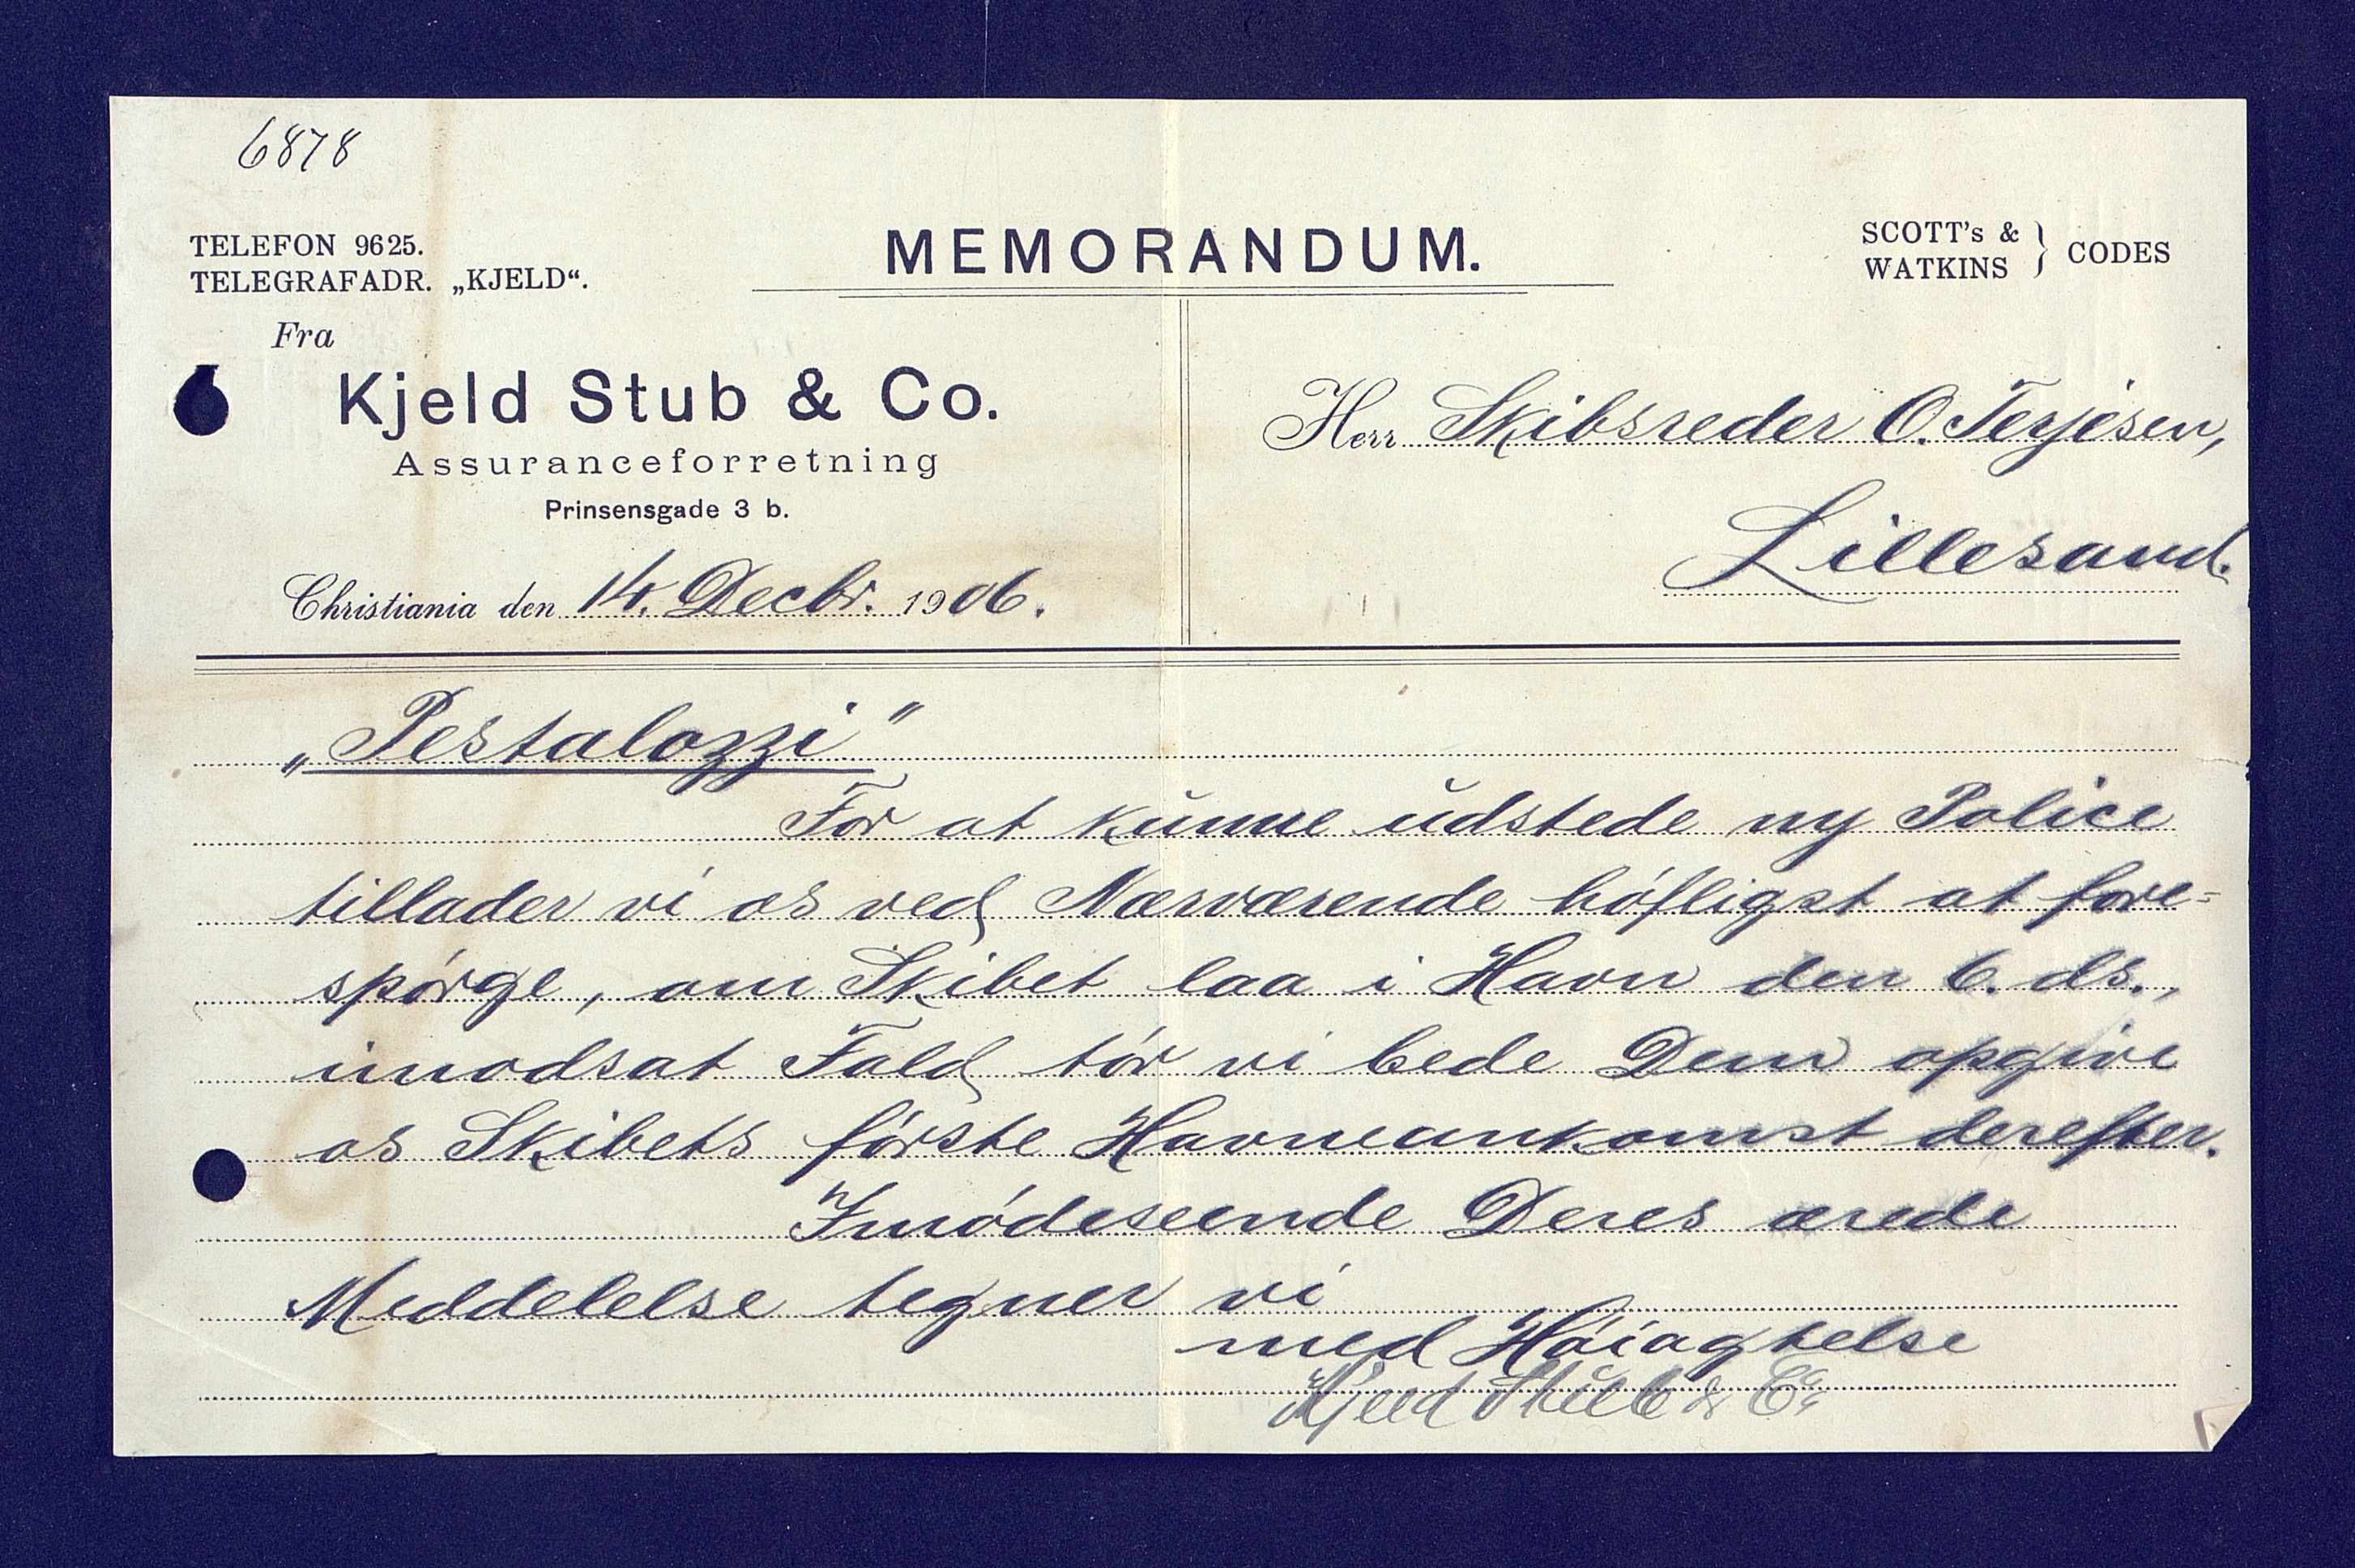 6878
TELEFON 9625.
TELEGRAFADR. „KJELD“.
MEMORANDUM.
SCOTT's &
WATKINS } CODES
Fra
Kjeld Stub & Co.
Assuranceforretning
Prinsensgade 3 b.
Christiania den 14. Decbr. 1906.
Herr Skibsreder O. Terjesen,
Lillesand.
„Pestalozzi”
For at kunne udstede ny Police
tillader vi os ved Nærværende höfligst at fore=
spörge, om Skibet laa i Havn den 6. ds.,
imodsat Fald tör vi bede Dem opgive
os Skibets förste Havneankomst derefter.
Imödeseende Deres ærede
Meddelelse tegner vi
med Höiagtelse
Kjeld Stub & Co